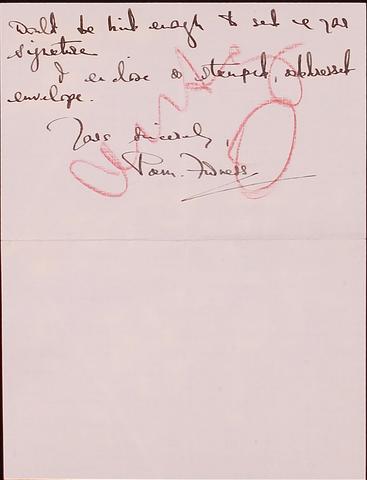 would be kind enough to send me your
signature
I enclose a stamped, addressed
envelope.
Yours sincerely,
Pam.